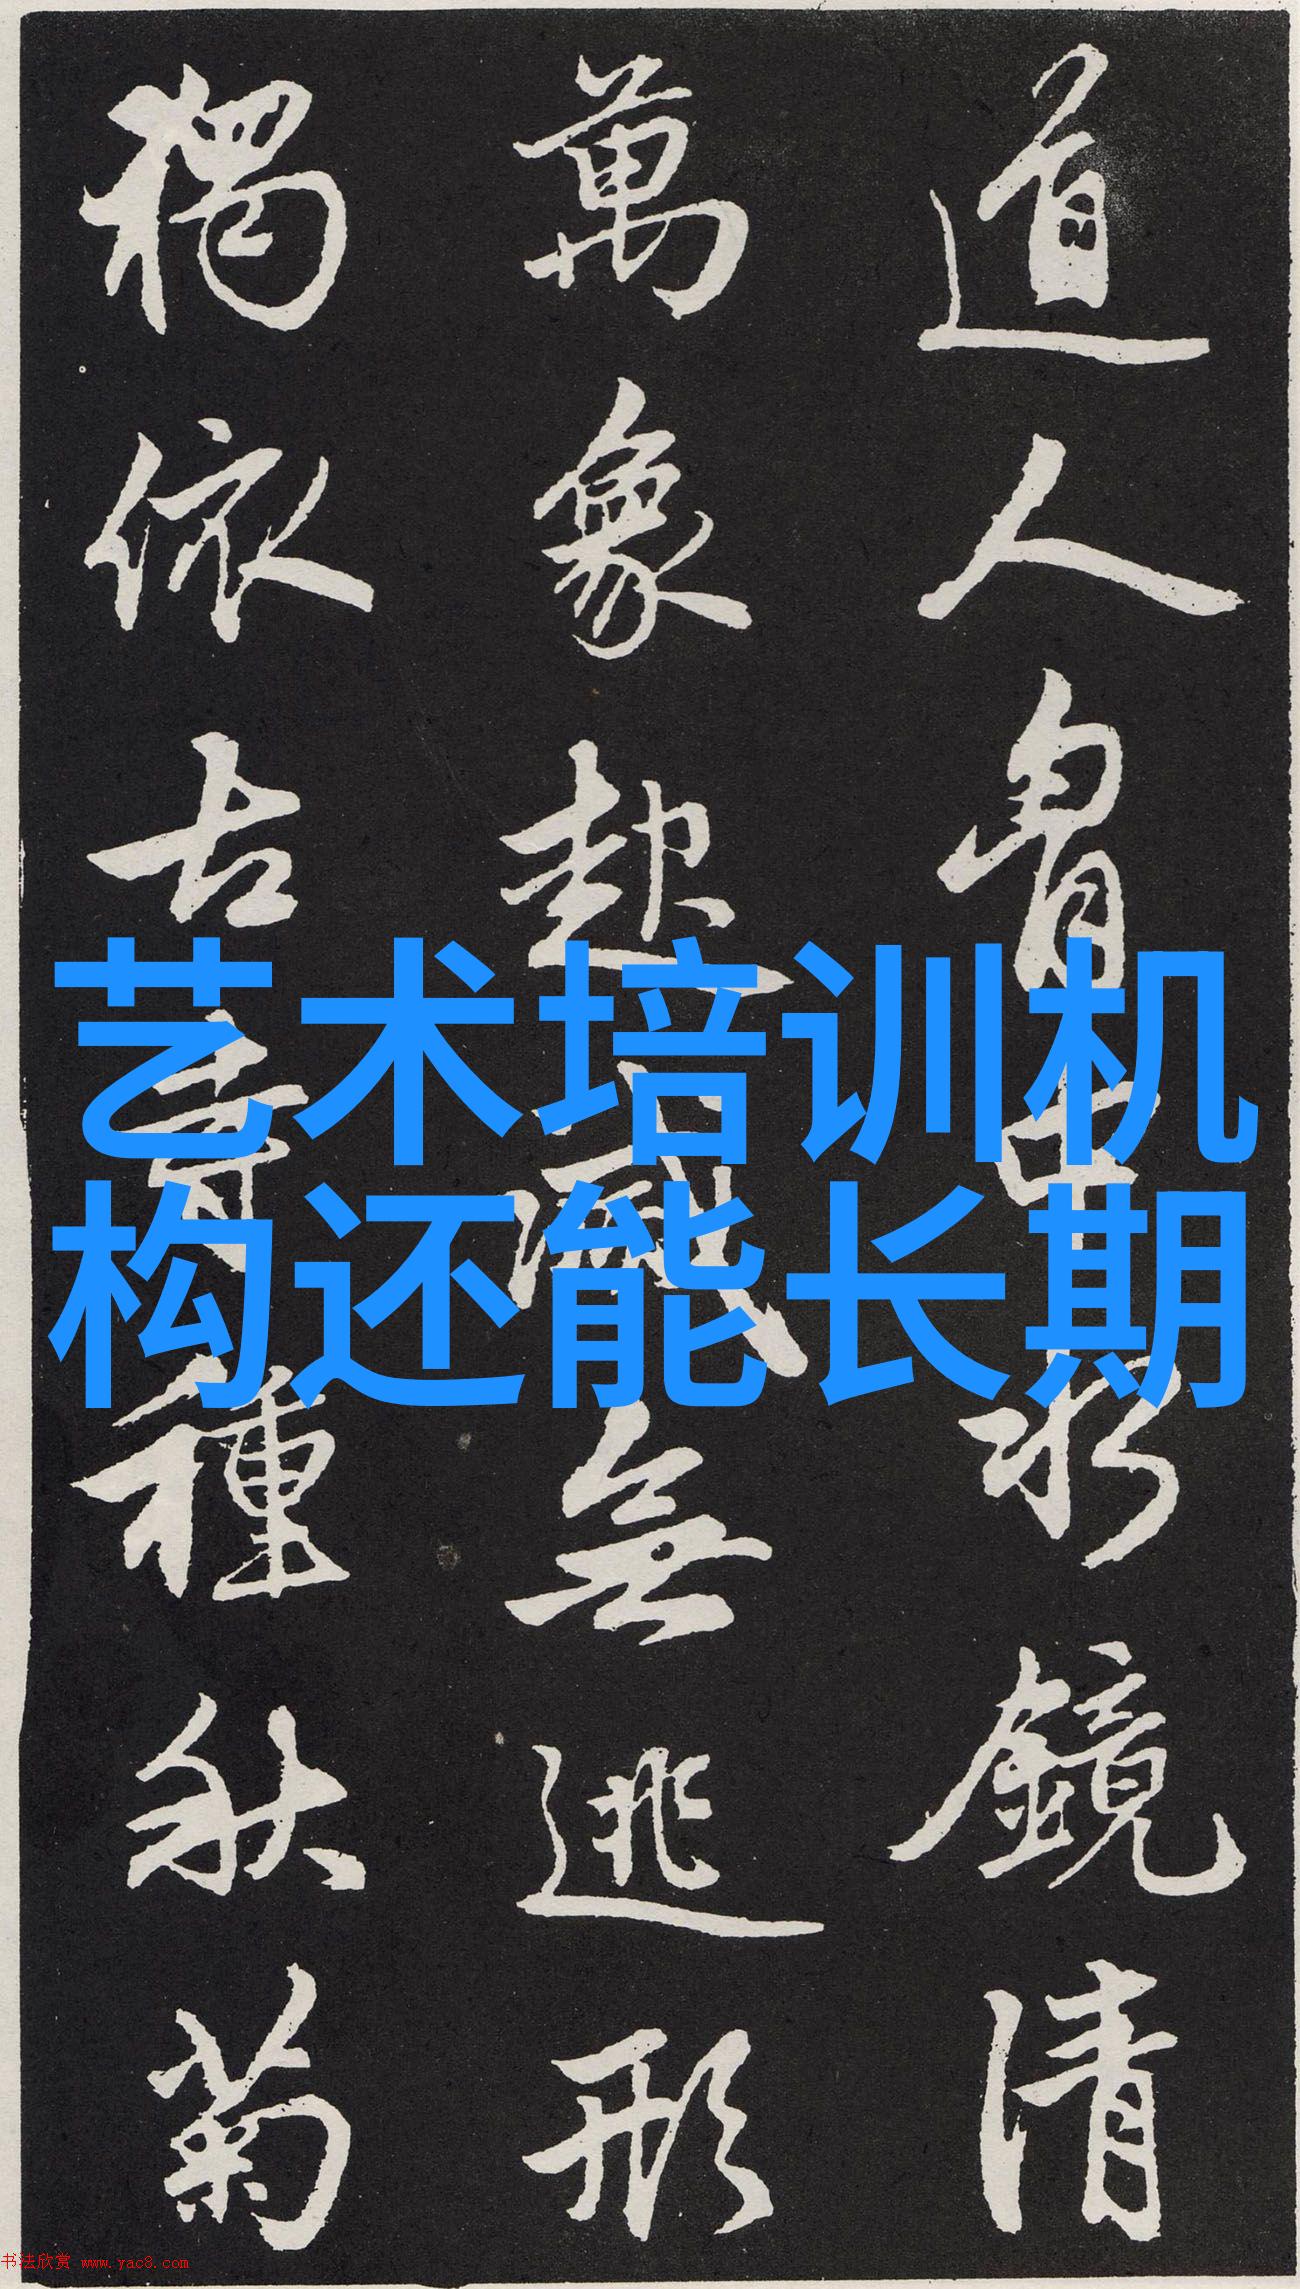 道人胷中水鏡清
萬象起滅無逃形
獨依古寺種秋菊
艺术培训机
构还能长期
书法欣赏 www.yac8.com